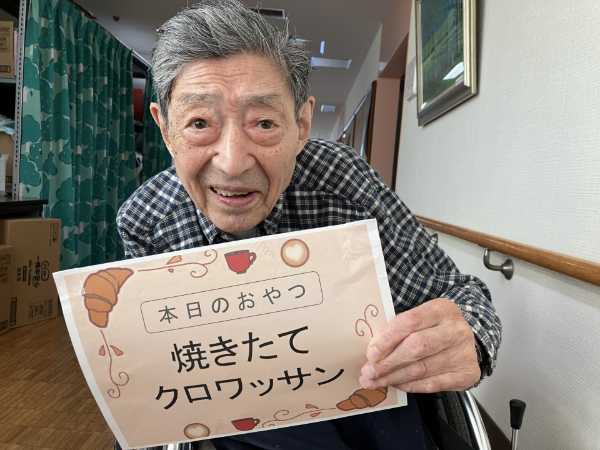 本日のおやつ
焼きたて
クロワッサン